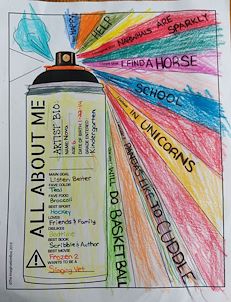 ALL ABOUT ME
ARTIST BIO
NAME: Nora
AGE: 6
DATE OF BIRTH:
GRADE ENTERED:
Kindergarten
MAIN GOAL
Listen Better
FAVE COLOR
Teal
FAVE FOOD
Broccoli
BEST SPORT
Hockey
LOVES
Friends & Family
DISLIKES
Bedtime
BEST BOOK
Scribble & Author
BEST MOVIE
Frozen 2
WANTS TO BE A
Singing Vet
HAPPY
HELP
NARWHALS ARE SPARKLY
I FIND A HORSE
SCHOOL
IN UNICORNS
PANDAS LIKE TO CUDDLE
WILL DO BASKETBALL